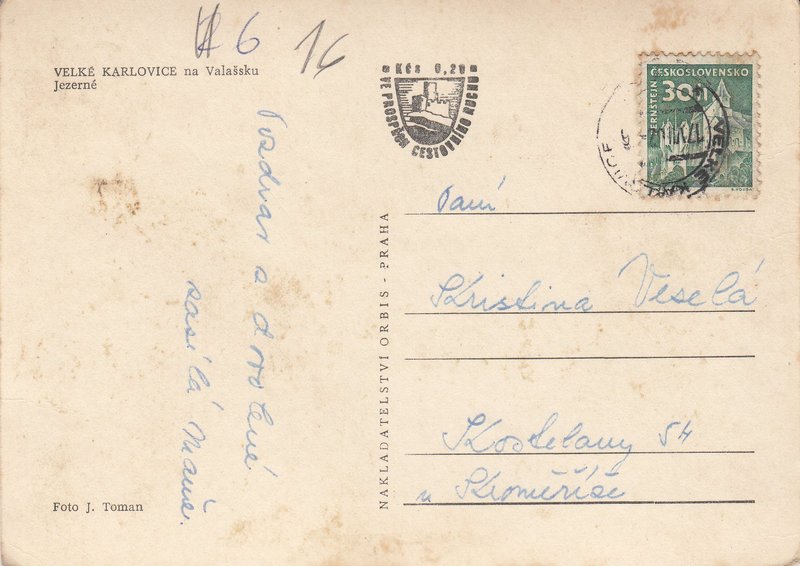 6 16
VELKÉ KARLOVICE na Valašsku
Jezerné
Pozdrav z dovolené
zasílá Máňa.
Foto J. Toman
NAKLADATELSTVÍ ORBIS - PRAHA
Kčs 0,20
VE PROSPĚCH CESTOVNÍHO RUCHU
ČESKOSLOVENSKO
PERNŠTEJN
30h
VELKÉ KARLOVICE
Paní
Kristina Veselá
Kostelany 54
u Kroměříže